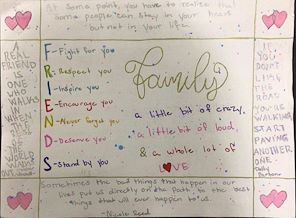 At some point, you have to realize that
some people can stay in your heart
but not in your life.
A
REAL
FRIEND
IS
ONE
WHO
WALKS
IN
WHEN
THE
REST
OF THE
WORLD
F-Fight for you
R-Respect you
I-Inspire you
E-Encourage you
N-Never forget you
D-Deserve you
S-Stand by you
Family
a little bit of crazy,
a little bit of loud,
& a whole lot of
LOVE
IF
YOU
DON'T
LIKE
THE
ROAD
YOU'RE
WALKING
START
PAVING
ANOTHER
ONE
Sometimes the bad things that happen in our
lives put us directly on the path to the best
things that will ever happen to us.
-Nicole Reed